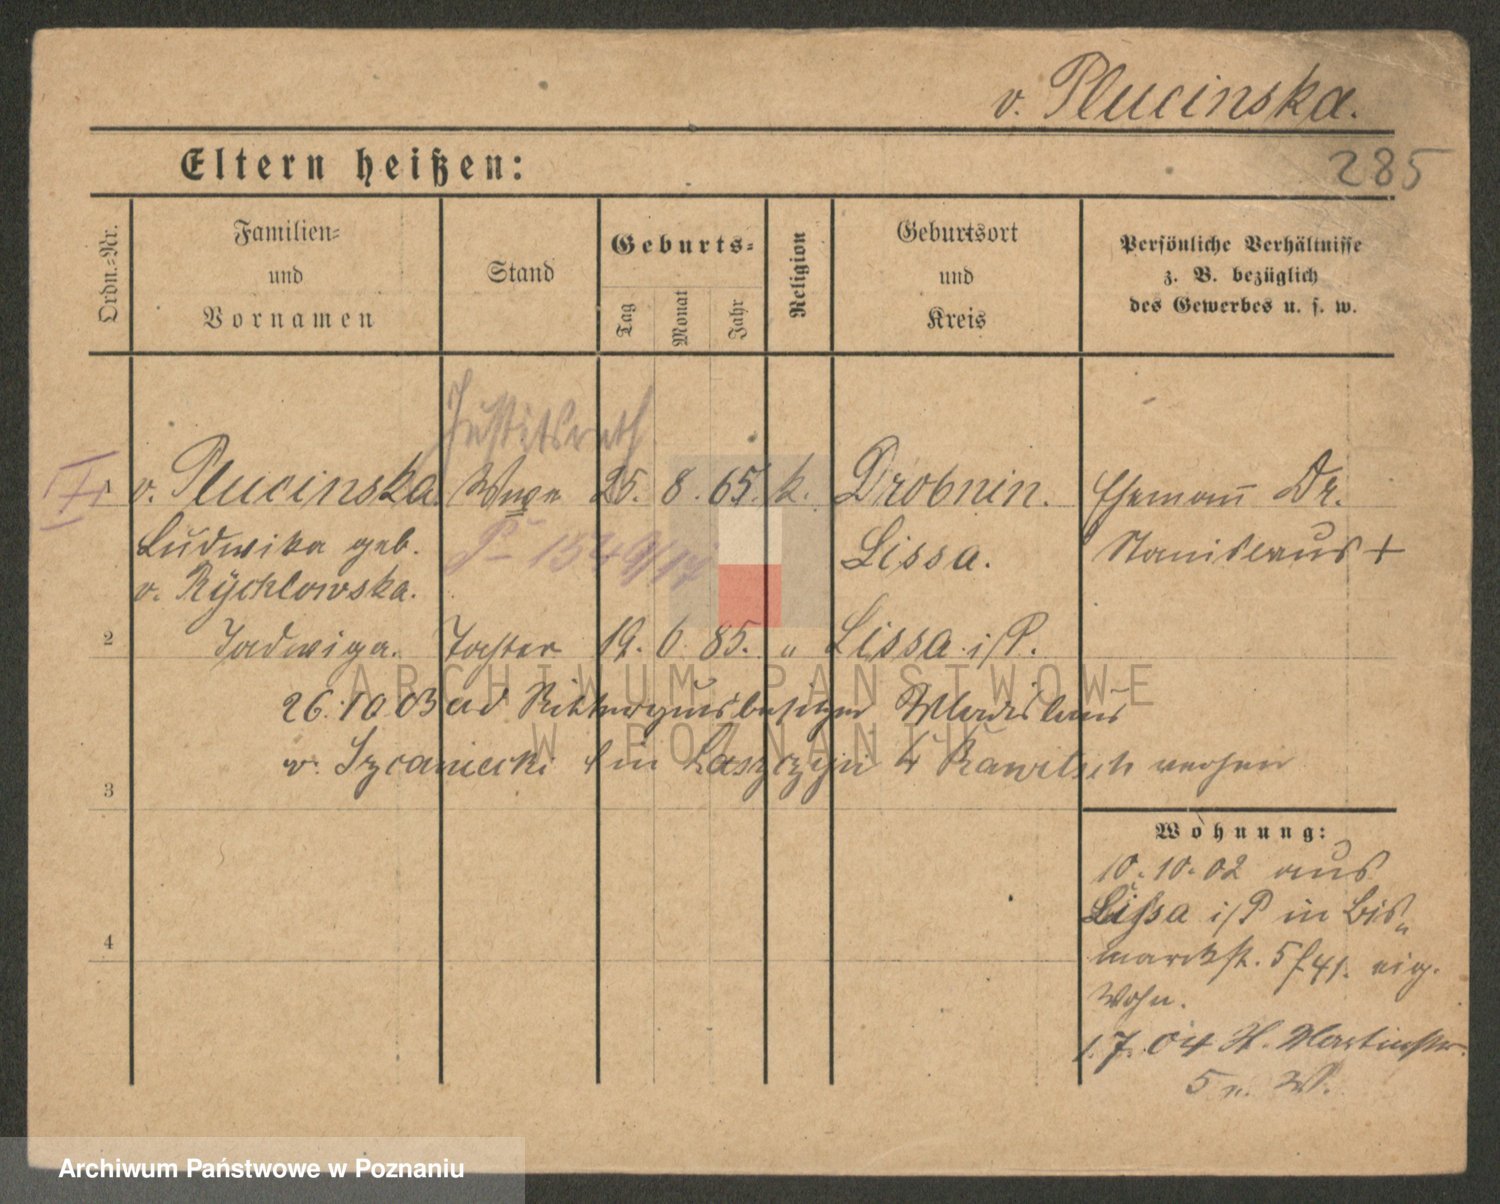 v. Plucinska.
Eltern heißen:
285
Ordn.-Nr.
Familien-
und
Vornamen
Stand
Geburts-
Tag
Monat
Jahr
Religion
Geburtsort
und
Kreis
Persönliche Verhältnisse
z. B. bezüglich
des Gewerbes u. s. w.
Justitsrath
1 v. Plucinska Wwe 25. 8. 65. k. Drobnin. Ehemann Dr.
Ludwika geb. Lissa. Stanislaus +
v. Rychlowska.
2 Jadwiga. Tochter 19. 6. 85. " Lissa i/P.
26.10.03 Rittergutsbesitzer Wladislaus
v. Szczaniecki in Laszczyn Rawitsch
3
4
Wohnung:
10.10.02 aus
Lissa i/P in Bis-
marckst. 5 eig.
Wohn.
1.7.04 H. Martinstr.
5
ARCHIWUM PAŃSTWOWE
W POZNANIU
Archiwum Państwowe w Poznaniu